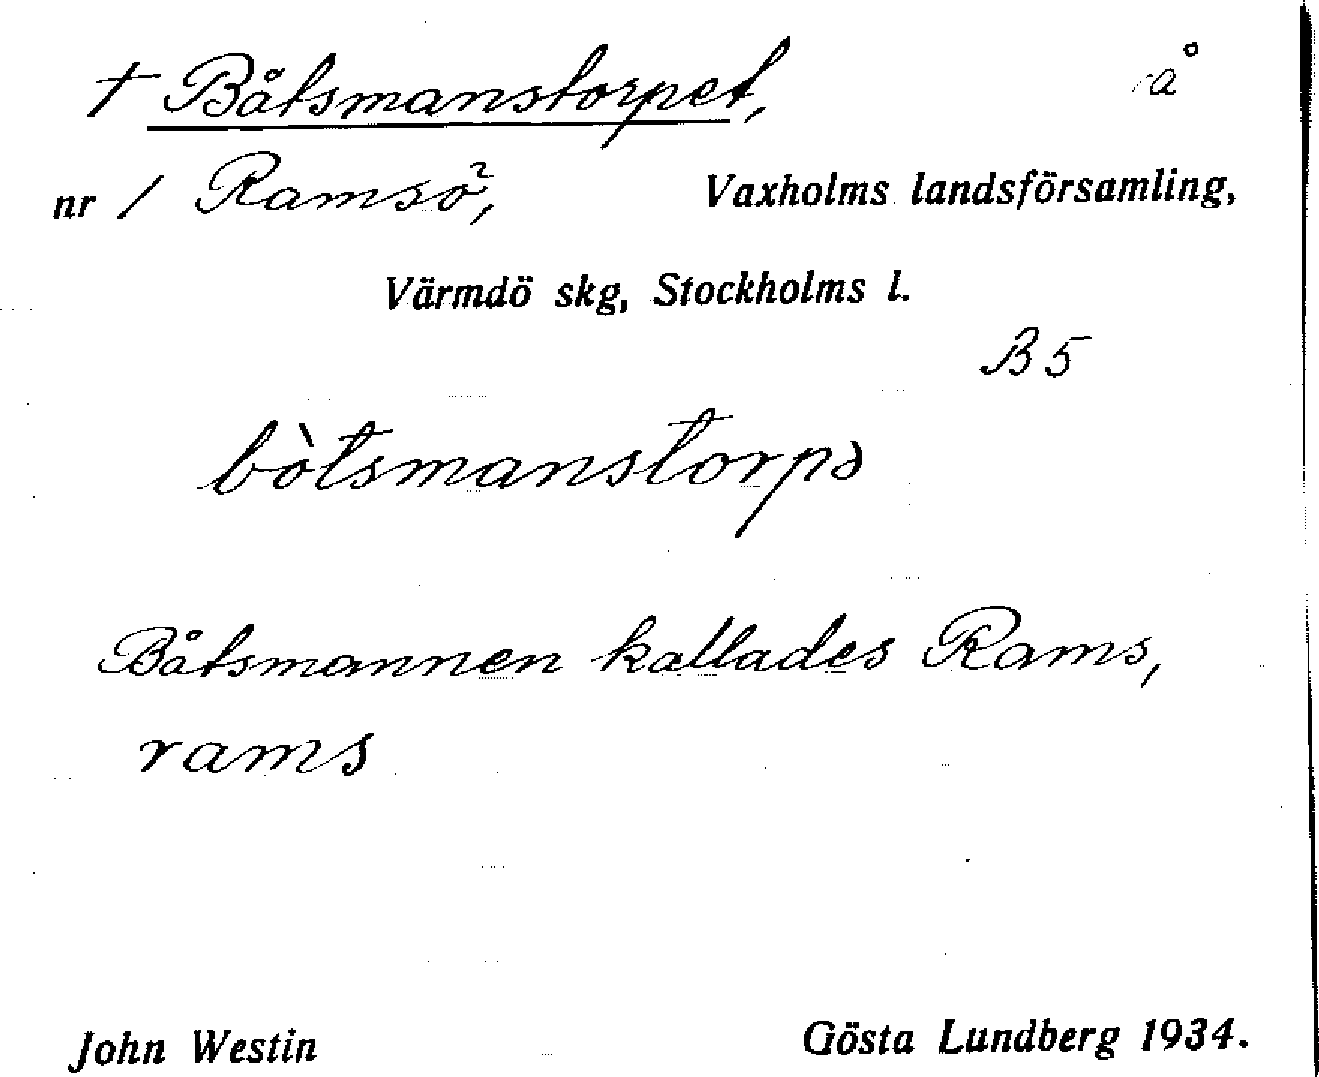 † Båtsmanstorpet, å
nr 1 Ramsö, Vaxholms landsförsamling,
Värmdö skg, Stockholms l.
B 5
bòtsmanstorpə
Båtsmannen kallades Rams,
rams
John Westin Gösta Lundberg 1934.